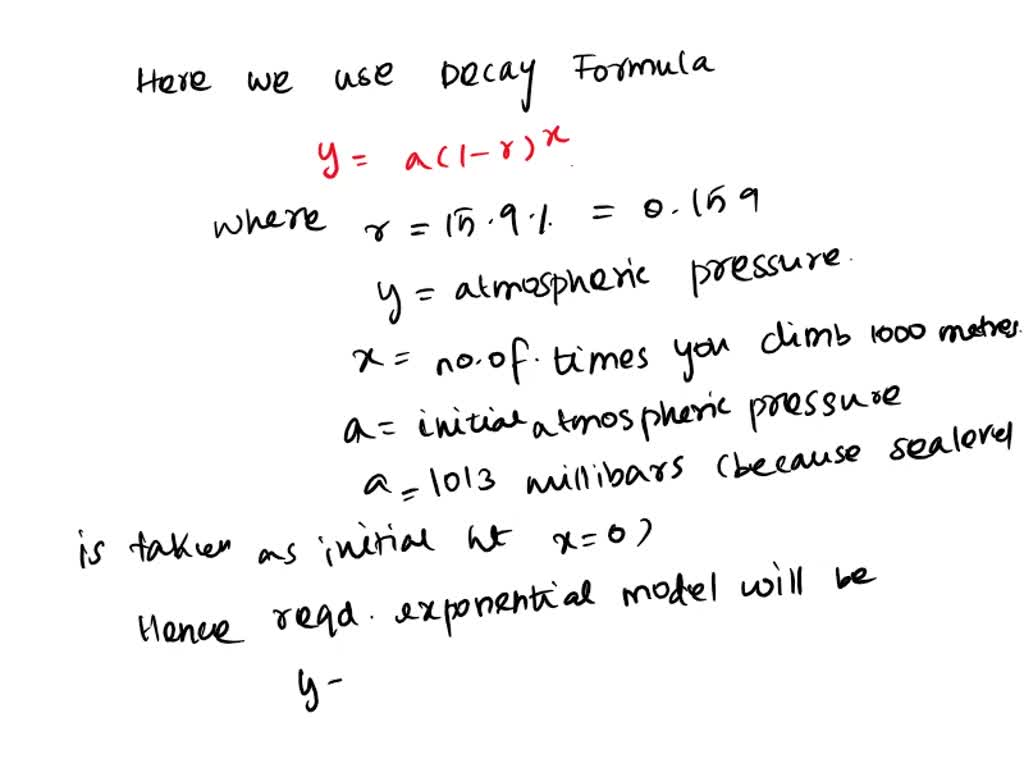 Here we use Decay Formula
y = a(1-r)^x
where r = 15.9% = 0.159
y = atmospheric pressure.
x = no.of.times you climb 1000 metres.
a = initial atmospheric pressure
a = 1013 millibars (because sealevel
is taken as initial ht x=0)
Hence reqd. exponential model will be
y -